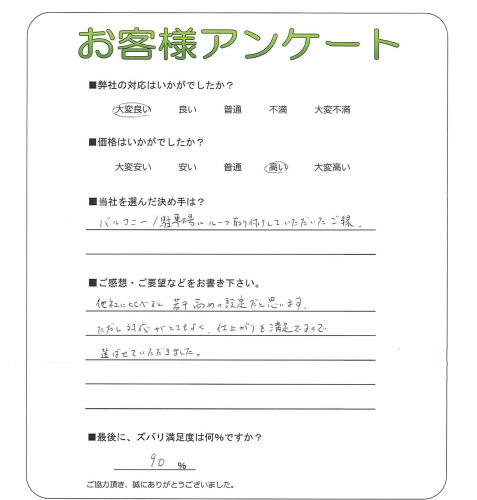 お客様アンケート
■弊社の対応はいかがでしたか？
大変良い 良い 普通 不満 大変不満
■価格はいかがでしたか？
大変安い 安い 普通 高い 大変高い
■当社を選んだ決め手は？
バルコニー/駐車場にルーフ取り付けしていただいたご縁。
■ご感想・ご要望などをお書き下さい。
他社にくらべると 若干高めの設定だと思います。
ただし対応がとてもよく、仕上がりも満足ですので
選ばせていただきました。
■最後に、ズバリ満足度は何%ですか？
90 %
ご協力頂き、誠にありがとうございました。